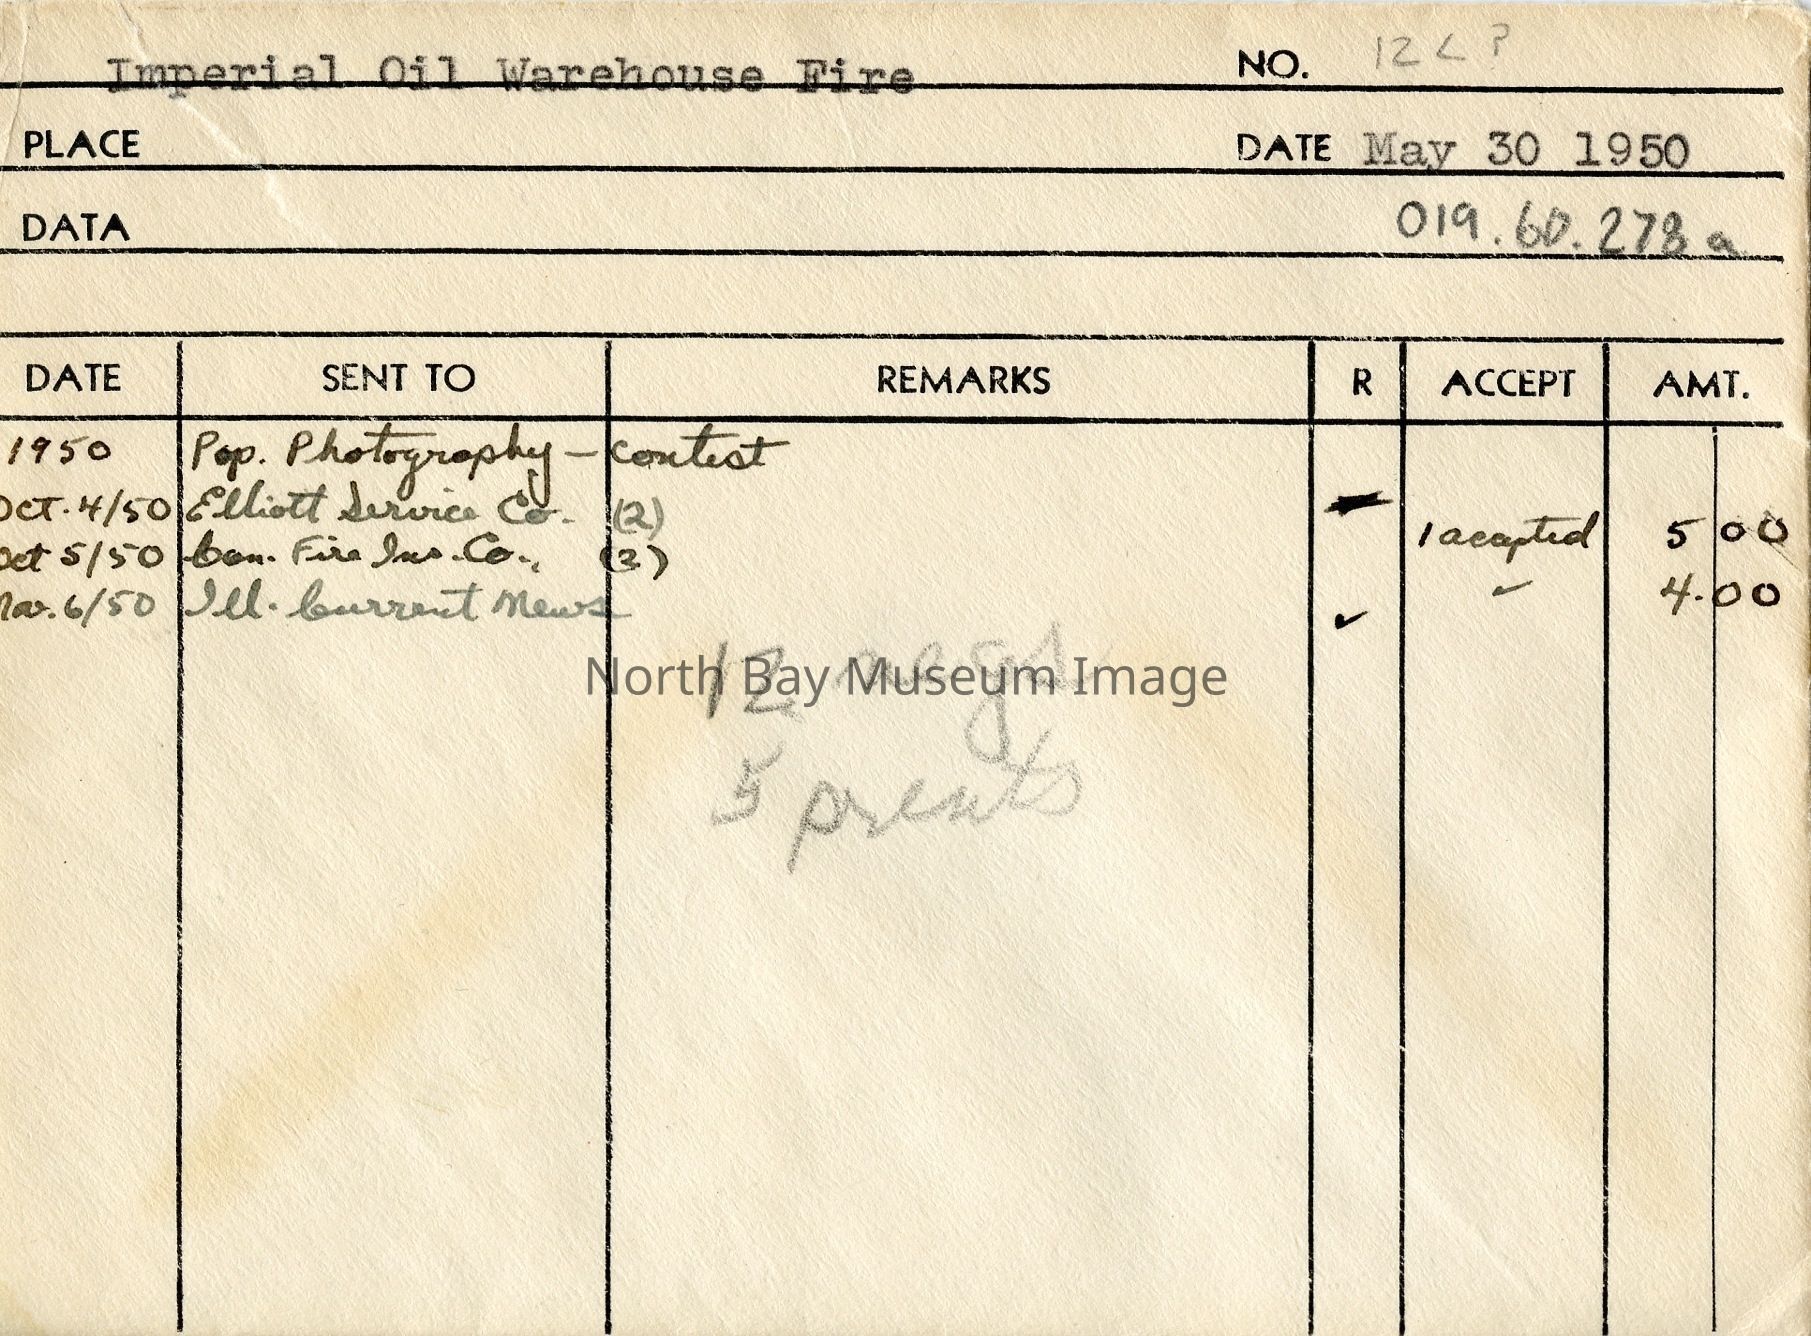 Imperial Oil Warehouse Fire NO. 12 < ?
PLACE DATE May 30 1950
DATA 019.60.278a
DATE SENT TO REMARKS R ACCEPT AMT.
1950 Pop. Photography – contest
Oct. 4/50 Elliott Service Co. (2)
1 accepted 5 00
Oct 5/50 Can. Fire Ins. Co., (2)
6/50 Ill. Current News ✓ ✓ 4.00
12 negs
North Bay Museum Image
5 prents